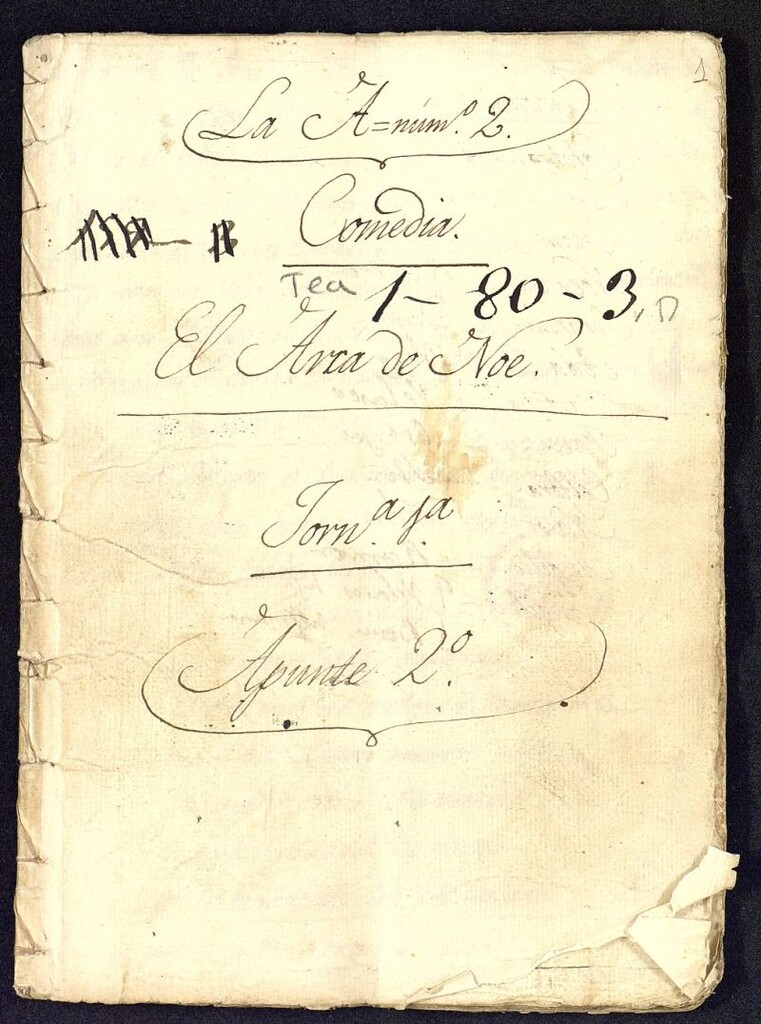 1
La A = núm.º 2.
Comedia.
Tea 1 - 80 - 3,
El Arca de Noe.
Jorn.ª 1ª
Apunte 2º.